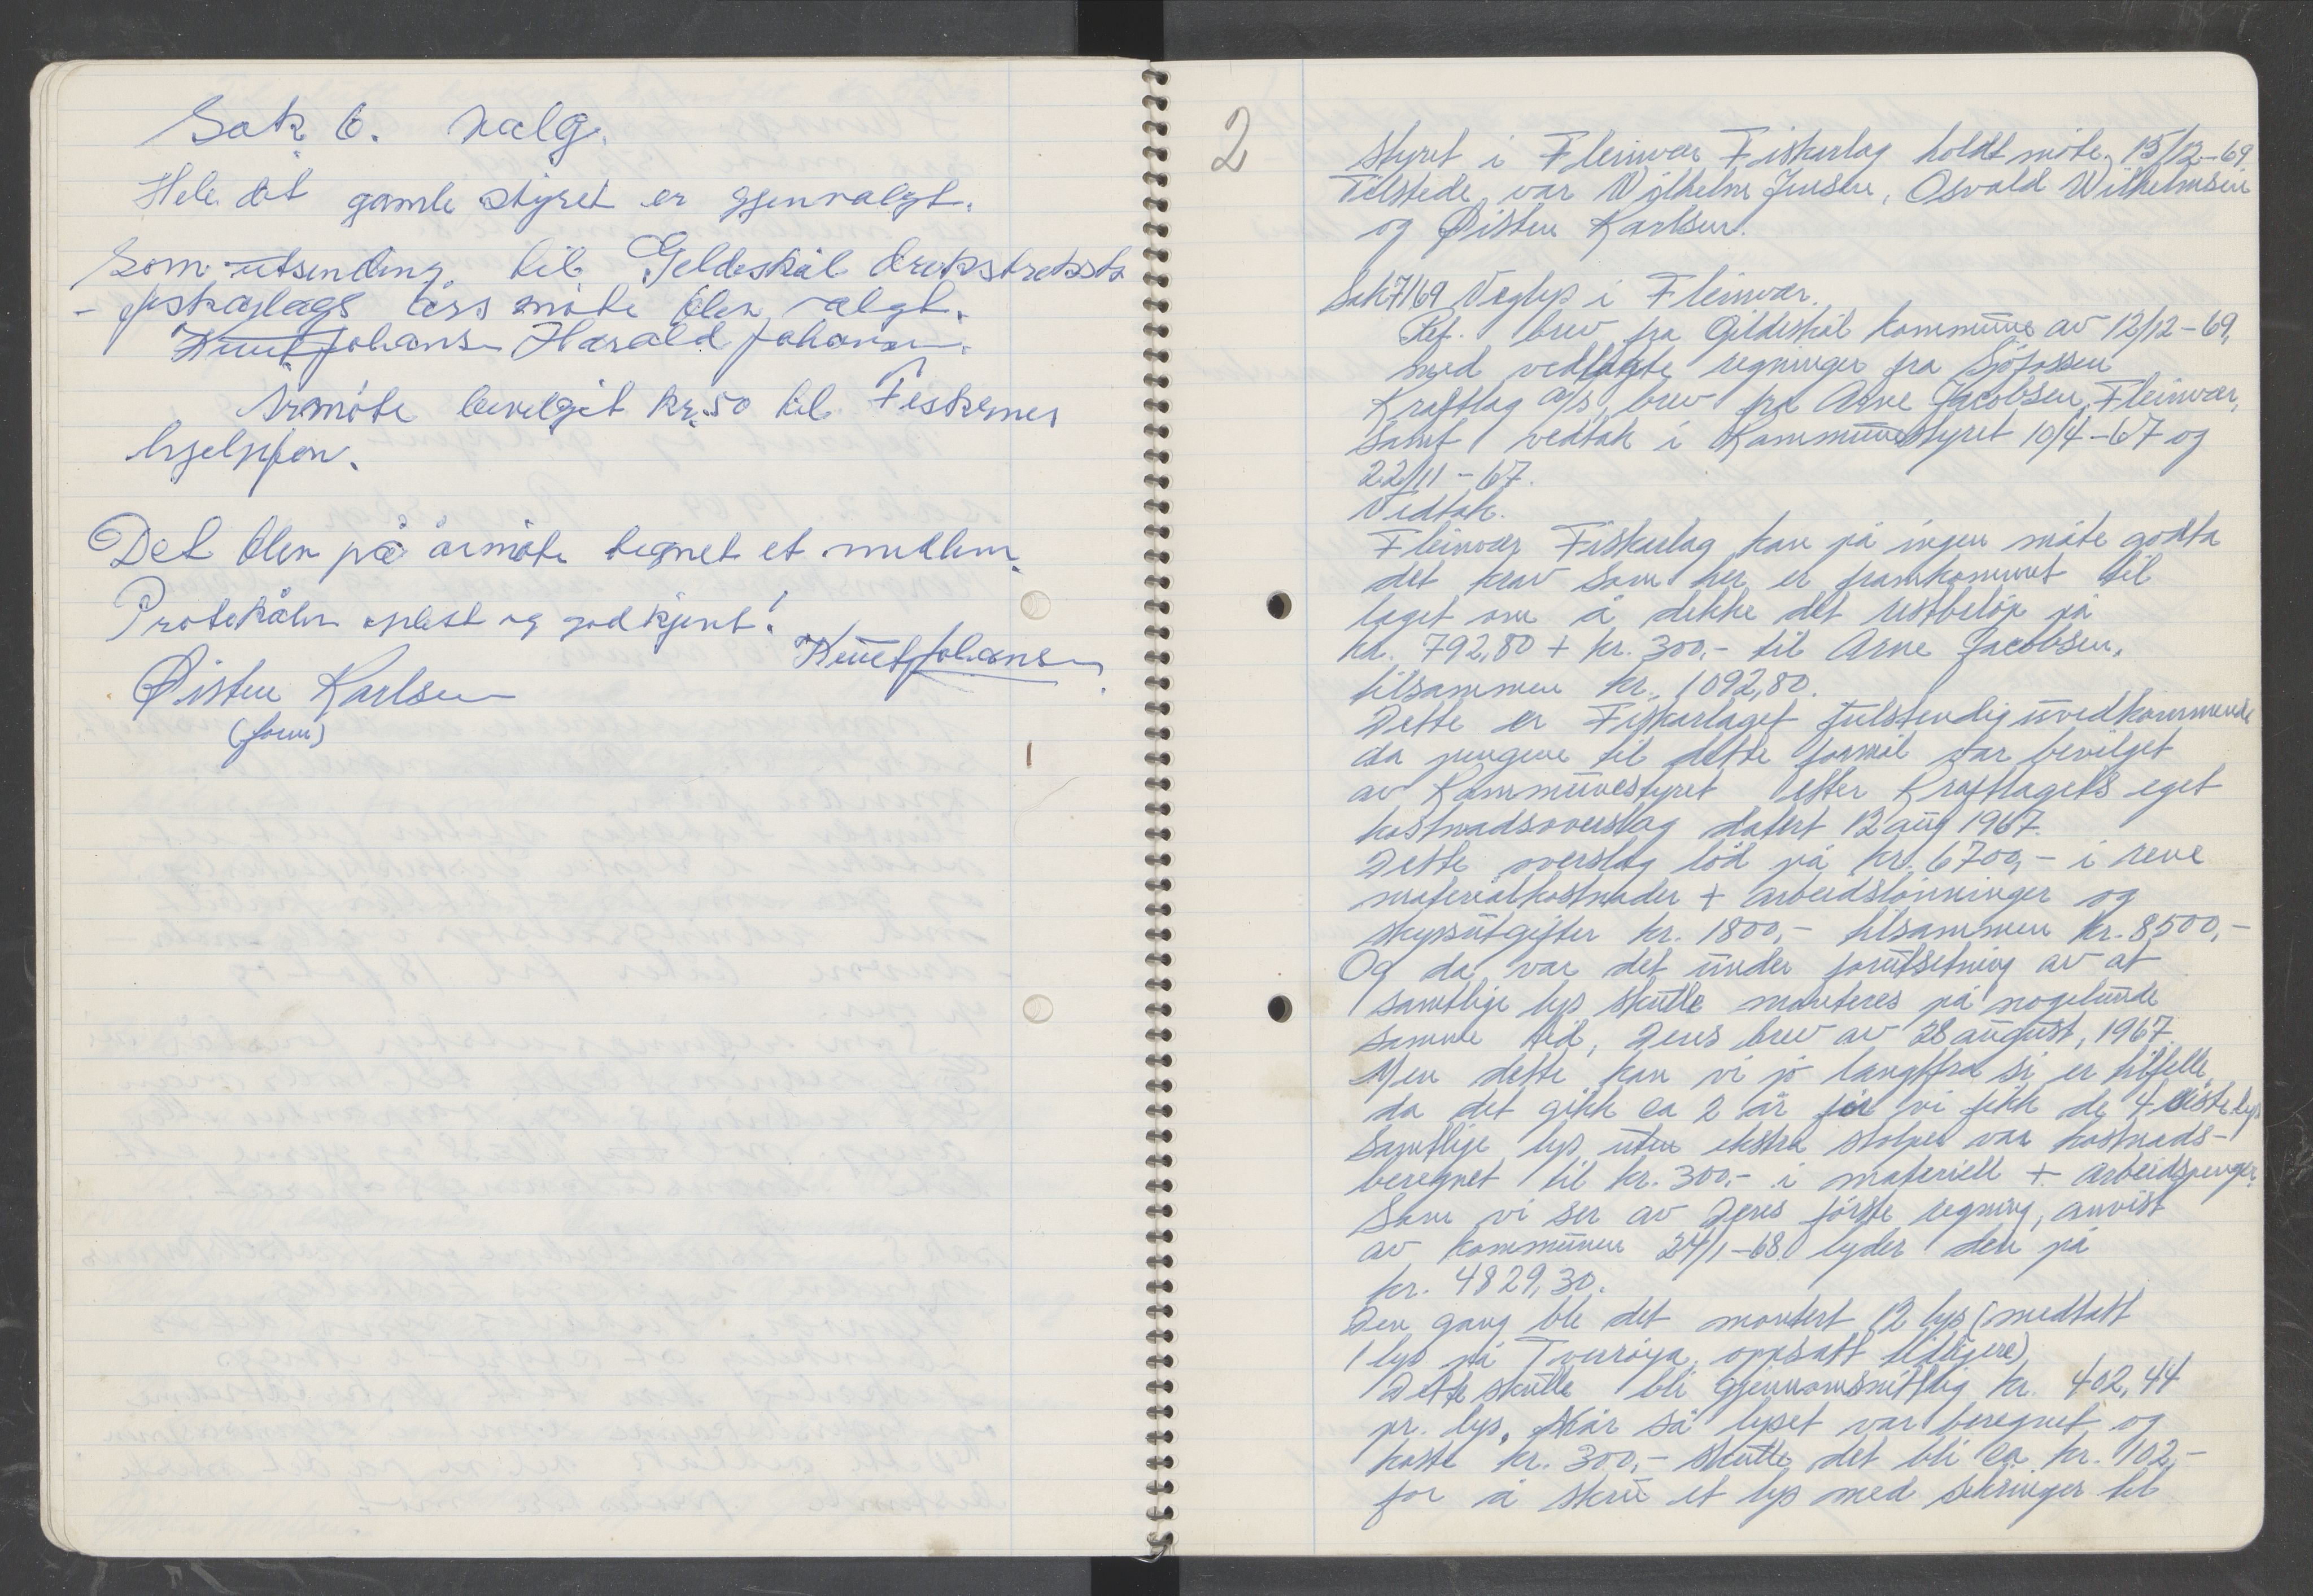 Sak 6. Valg.
Hele det gamle styret er gjenvalgt.
Som utsending til Gildeskål
- fiskarlags års møte blev valgt.
Knut Johans Harald Johansen.
Årmøte bevilget kr. 50 til Fiskernes
hjelpfon.
Det blev på årmøte tegnet et medlem.
Protokålen oplest og godkjent!
Knut Johansen
Øisten Karlsen
(form)
2
Styret i Fleinvær Fiskarlag holdt møte, 15/12-69
Tilstede var Wilhelm Jensen, Osvald Wilhelmsen
og Øisten Karlsen.
Sak 7/69 Veglys i Fleinvær.
Ref. brev fra Gildeskål kommune av 12/12-69,
med vedlagte regninger fra Sjøfossen
Kraftlag A/S, brev fra Arne Jacobsen, Fleinvær,
samt vedtak i Kommunestyret 10/4-67 og
22/11-67.
Vedtak.
Fleinvær Fiskarlag kan på ingen måte godta
det krav som her er framkommet til
laget om å dekke det restbeløp på
kr. 792,80 + kr. 300,- til Arne Jacobsen,
tilsammen kr. 1092,80.
Dette er Fiskarlaget fulstendig uvedkommende
da pengene til dette formål var bevilget
av Kommunestyret etter Kraftlagets eget
kostnadsoverslag datert 12 aug 1967.
Dette overslag lød på kr. 6700,- i rene
materialkostnader + arbeidslønninger og
skyssutgifter kr. 1800,- tilsammen kr. 8500,-
Og da var det under forutsetning av at
samtlige lys skulle monteres på nogelunde
samme tid, Deres brev av 28 august, 1967.
Men dette kan vi jo langtfra si er tilfelle
da det gikk ca 2 år før vi fikk de 4 siste lys
Samtlige lys uten ekstra stolper var kostnads-
beregnet til kr. 300,- i materiell + arbeidspenger.
Som vi ser av Deres første regning, anvist
av kommunen 24/1-68 lyder den på
kr. 4829,30.
Den gang ble det montert 12 lys (medtatt
1 lys på Tverrøya, oppsatt tidligere)
Dette skulle bli gjennomsnittlig kr. 402,44
pr. lys. Når så lyset var beregnet og
koste kr. 300,- skulle det bli ca kr. 102,-
for å skru et lys med sikringer til